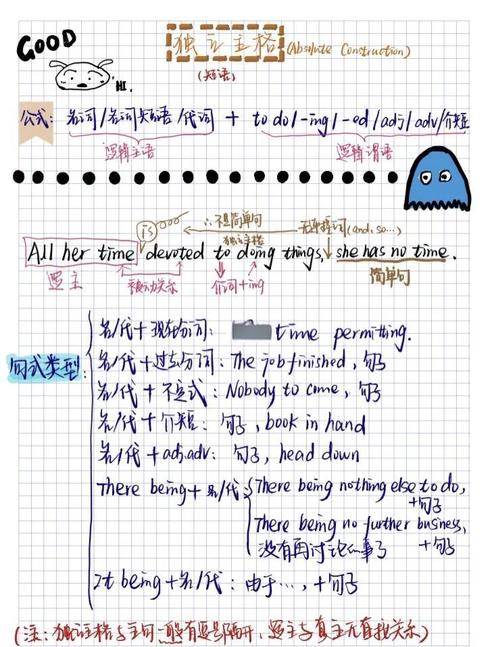 GOOD
独立主格 (Absolute Construction)
(短语)
HI.
公式: 名词/名词短语/代词 + to do/-ing/-ed/adj/adv/介短
逻辑主语 逻辑谓语
is ∴不是简单句 无连接词(and, so...)
独立主格
All her time devoted to doing things, she has no time.
逻主 被动关系 介词+ing 简单句
句式类型:
名/代+现在分词: time permitting.
名/代+过去分词: The job finished, 句子
名/代+不定式: Nobody to come, 句子
名/代+介短: 句子, book in hand
名/代+adj.adv: 句子, head down
There being+名/代 There being nothing else to do,
+句子
There being no further business,
没有再讨论的事了 +句子
It being+名/代: 由于..., +句子
(注: 独立主格与主句一般有逗号隔开, 逻主与真主无直接关系)